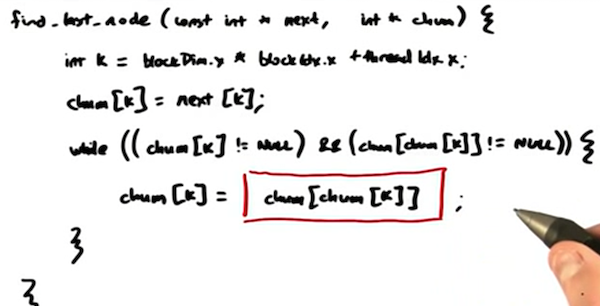 find_last_node (const int * next, int * chum) {
int k = blockDim.x * blockIdx.x + thread Idx.x;
chum [k] = next [k];
while ((chum [k] != NULL) && (chum [chum [k]] != NULL)) {
chum [k] = chum [chum [k]] ;
}
}